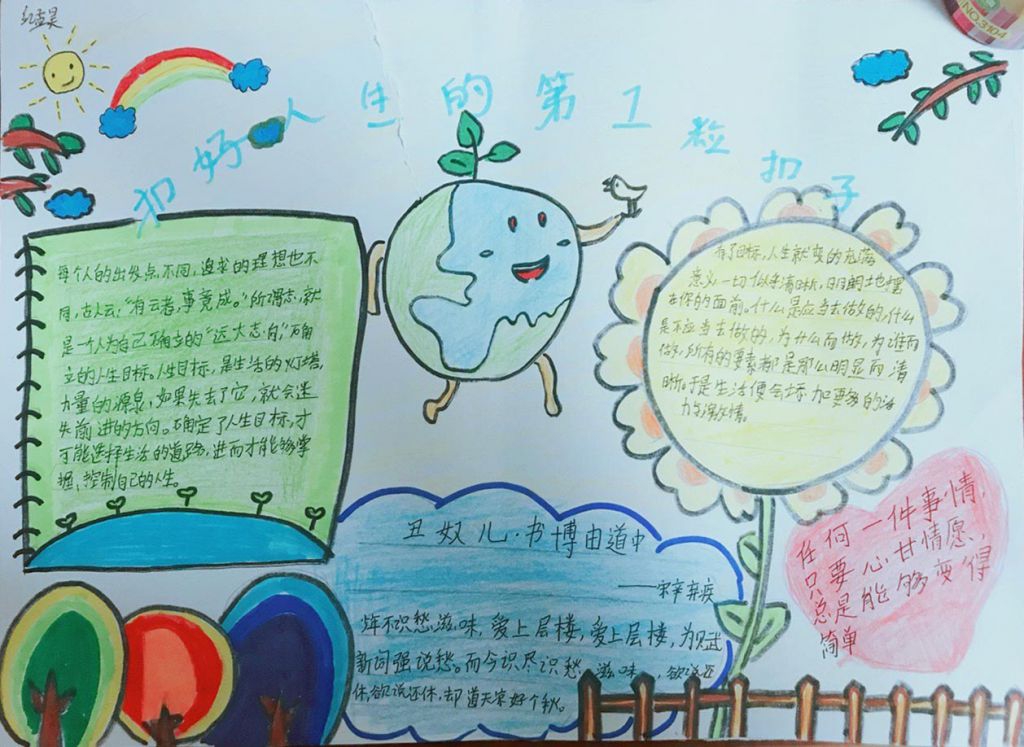 扣好人生的第1粒扣子
NO.3104
每个人的出发点不同,追求的理想也不
同,古人云:“有云者,事竟成。”所谓志,就
是一个人为自己确立的“远大志向,”确
立的人生目标。人生目标,是生活的灯塔,
力量的源泉,如果失去了它,就会迷
失前进的方向。确定了人生目标,才
可能选择生活的道路,进而才能够掌
握、控制自己的人生。
有了目标,人生就变的充满
意义,一切似乎清晰,明朗地摆
在你的面前。什么是应当去做的,什么
是不应当去做的,为什么而做,为谁而
做,所有的要素都是那么明显而清
晰。于是生活便会添加更多的活
力与激情。
丑奴儿·书博由道中
——宋辛弃疾
年不识愁滋味,爱上层楼,爱上层楼,为赋
新词强说愁。而今识尽识愁滋味,欲说还
休,欲说还休,却道天凉好个秋。
任何一件事情,
只要心甘情愿,
总是能够变得
简单